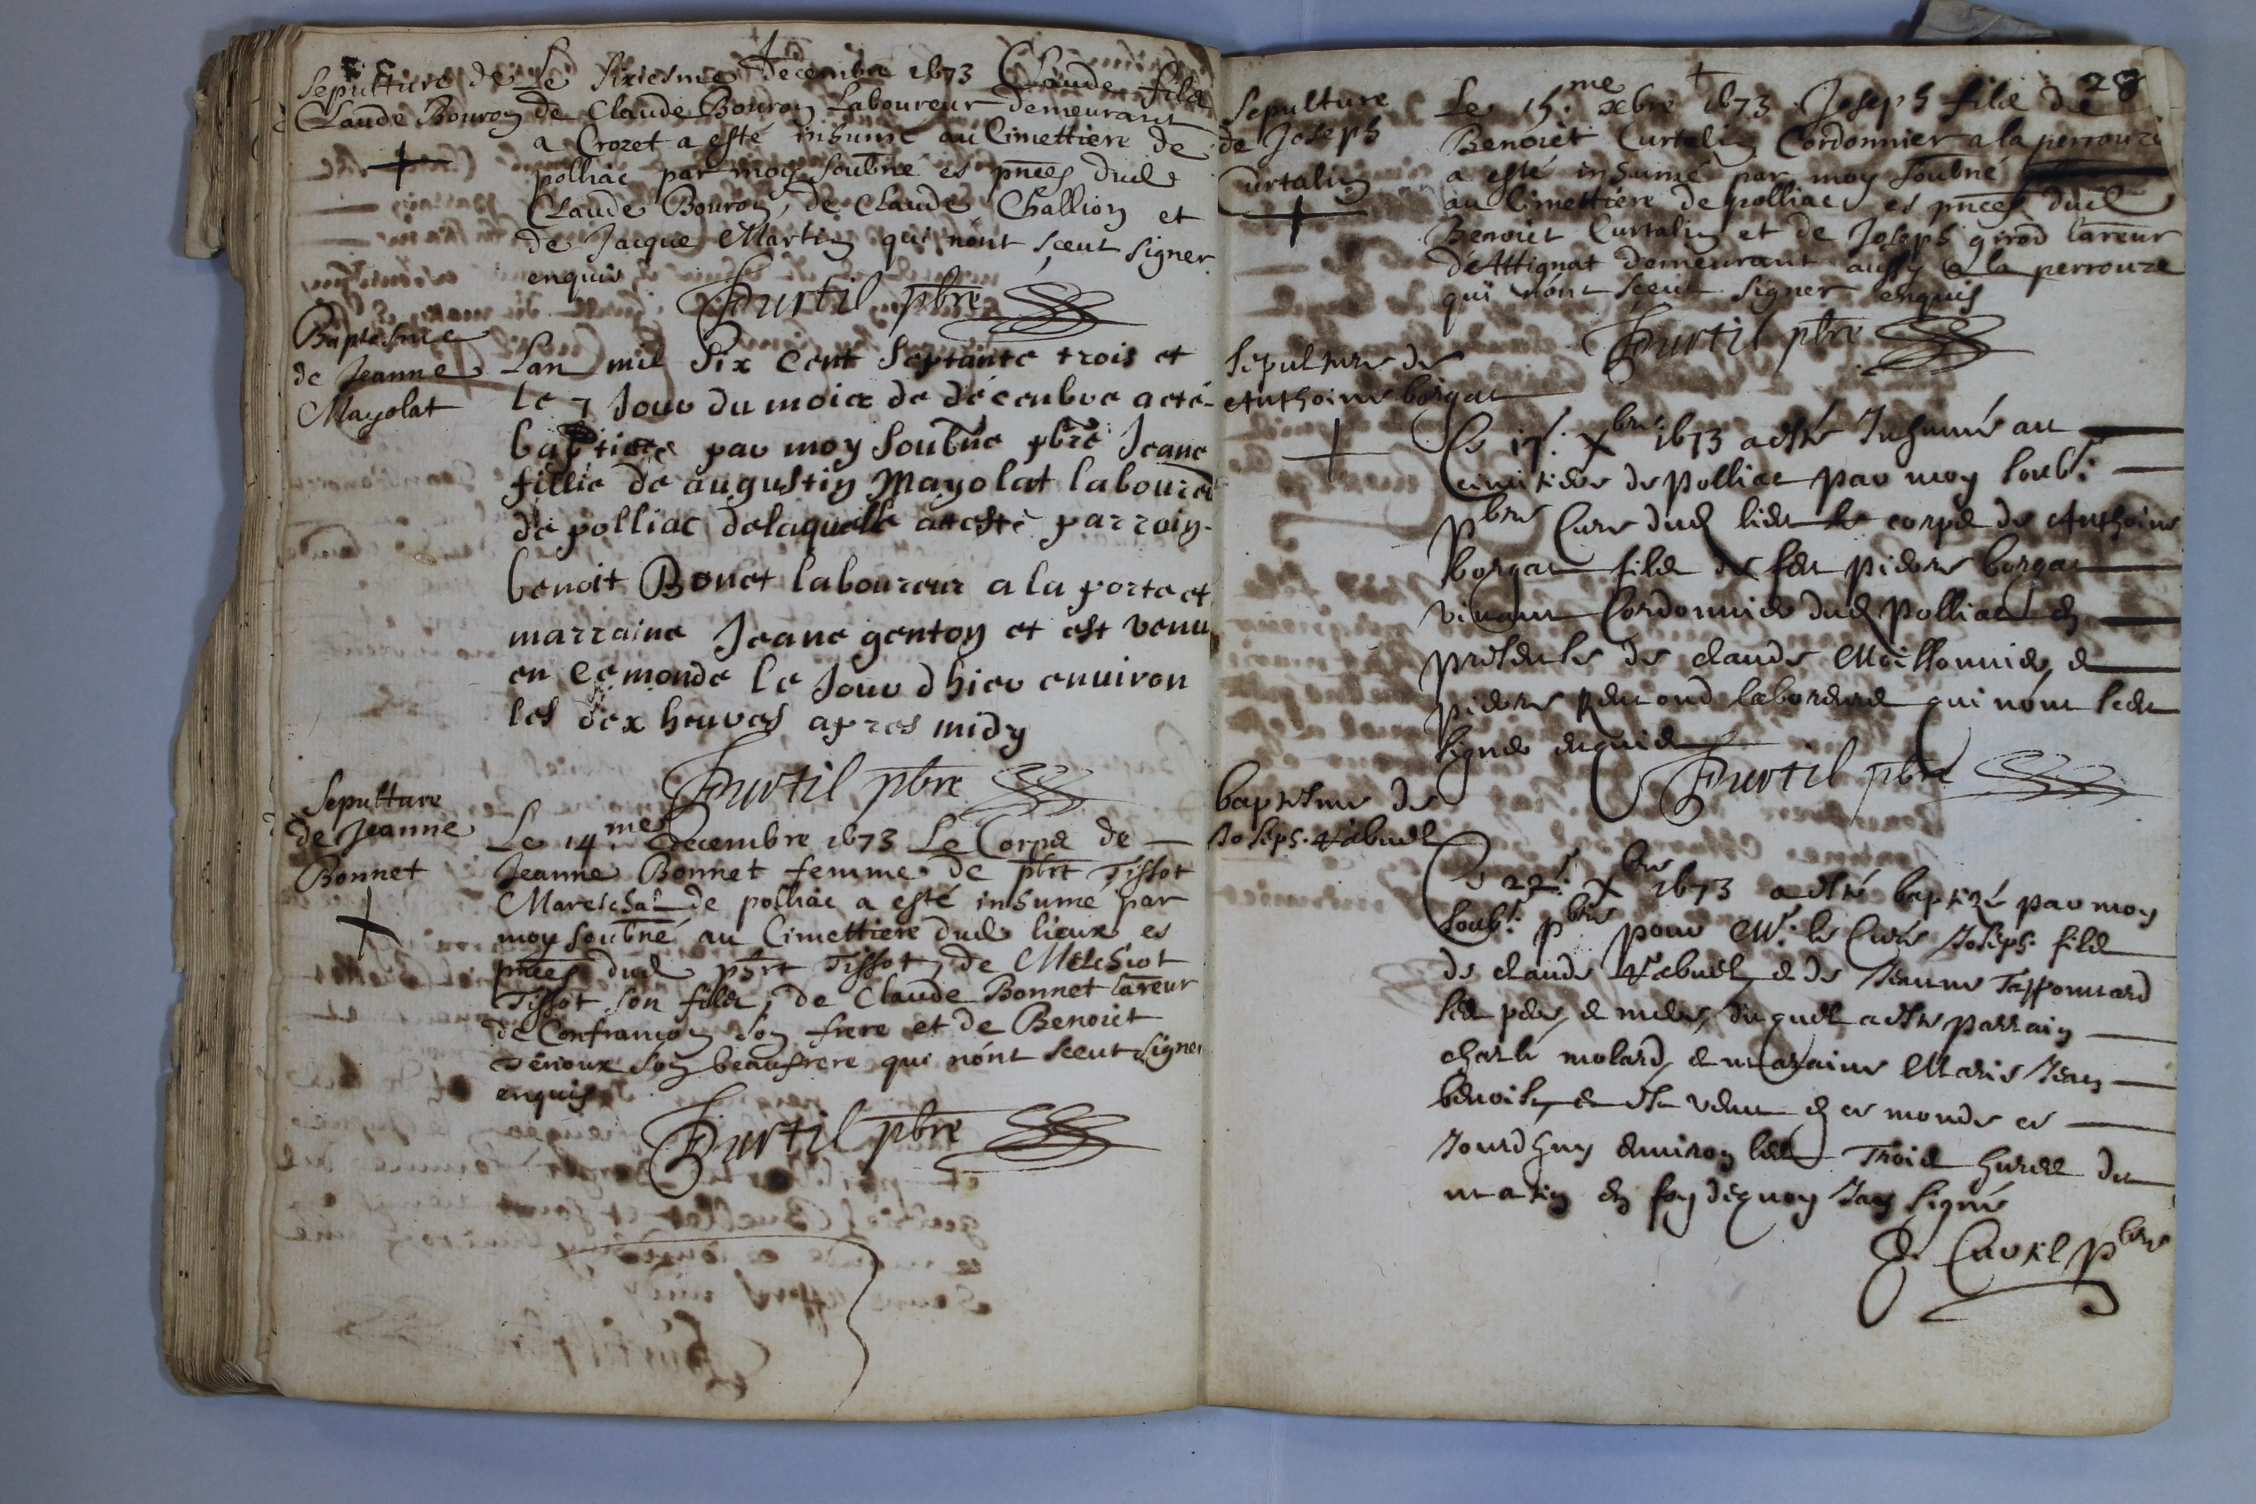 Sepulture de
Claude Bouron
Le sixiesme decembre 1673 Claude filz
de Claude Bouron Laboureur demeurant
a Crozet a esté inhumé au Cimettiere de
polliac par moy soubne es pnces dud
Claude Bouron, de Claude Challion et
de Jacque Martin qui nont sceut signer
enquis
Curtil pbre
Baptesme
de Jeanne
Mayolat
Lan mil six cent septante trois et
le 7 Jour du moix de décenbre a eté
baptisée par moy soubne pbre Jeane
fillie de augustin Mayolat laboureur
de polliac delaquelle at esté parroin
benoit Bonet laboureur a la porte et
marraine Jeane genton et est venu
en ce monde le Jour d hier environ
les dex heures apres midy
Curtil pbre
Sepulture
de Jeanne
Bonnet
Le 14.me decembre 1673 Le Corps de
Jeanne Bonnet femme de phrt Tissot
Mareschal de polliac a esté inhumé par
moy soubné au Cimettiere dud lieux es
pnces dud phrt Tissot, de Melchiot
Tissot son filz, de Claude Bonnet lareur
de Confrançon son frere et de Benoist
son beaufrere qui nónt sceut signer
enquis
Curtil pbre
28
Sepulture
de Joseph
Curtalin
Le 15.me xbre 1673 Joseph filz de
Benoist Curtalin Cordonnier a la perrouze
a esté inhumé par moy soubné
au Cimettiére de polliac es pnces dud
Benoist Curtalin et de Joseph girod lareur
d'Attignat demeurant aussy a la perrouze
qui nónt sceut signer enquis
Curtil pbre
Sepulture de
Anthoine borgat
Ce 17. Xbre 1673 a esté Inhumé au
cimitiere de Polliat par moy soubs.
pbre Curé dud lieu le corps de Anthoine
borgat filz de feu pierre borgat
vivant Cordonnier dud Polliat en
presence de claude Moissonnier, et
pierre laboureurs qui nónt sceu
signer enquis
Curtil pbre
baptesme de
Joseph
Ce 22. Xbre 1673 a esté baptizé par moy
soubs. pbre pour Mr. le Curé Joseph filz
de claude et de Jeanne Tapponnard
ses pere, et mere, duquel a esté parrain
charle molard, et maraine Marie Jean
benoiste, et est venu en ce monde ce
Jourdhuy environ les Trois heures du
matin en foy dequoy Jay signé
Curtil pbre